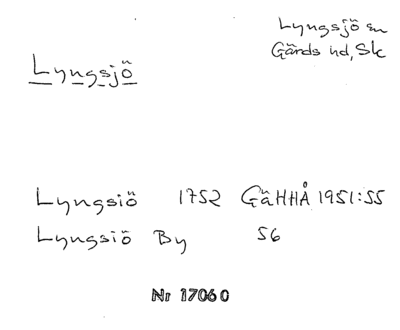 Lyngsjö sn
Gärds hd, Sk
Lyngsjö
Lyngsiö 1752 GäHHÅ 1951:55
Lyngsiö By 56
Nr 17060